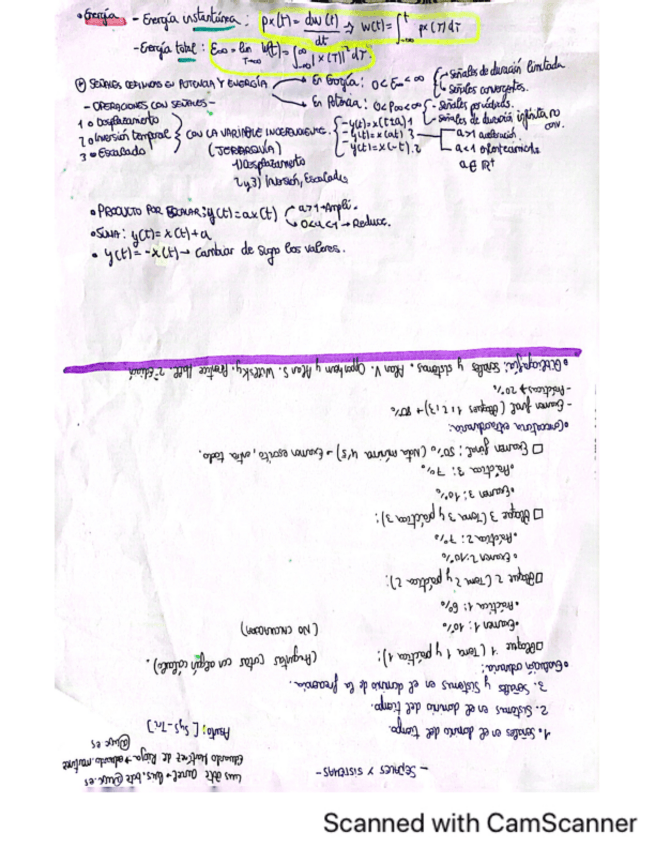 • Energía - Energía instantánea: px(t) = dw(t)/dt ⇒ w(t) = ∫_{-∞}^{t} px(τ)dτ
- Energía total: E∞ = lim_{T→∞} = ∫_{-∞}^{∞} |x(τ)|² dτ
SEÑALES DEFINIDAS EN POTENCIA Y ENERGÍA
En Energía: 0<E∞<∞ - Señales de duración limitada
- Señales convergentes.
En Potencia: 0<P∞<∞ - Señales periódicas.
- Señales de duración infinita no conv.
- OPERACIONES CON SEÑALES -
1 • Desplazamiento
2 • Inversión temporal
3 • Escalado
CON LA VARIABLE INDEPENDIENTE.
- y(t)=x(t±a) 1
- y(t)=x(at) 3
- y(t)=x(-t). 2
a>1 aceleración.
a<1
a∈ℝ⁺
(JERARQUÍA)
1) Desplazamiento
2 y 3) Inversión, Escalado
• PRODUCTO POR ESCALAR: y(t)=ax(t) a>1→Ampli.
0<a<1→Reduce.
• SUMA: y(t)=x(t)+a
• y(t)=-x(t)→ Cambiar de signo los valores.
- SEÑALES Y SISTEMAS -
@uax.es
Asunto: [SyS-
1. Señales en el dominio del tiempo.
2. Sistemas en el dominio del tiempo.
3. Señales y Sistemas en el dominio de la frecuencia.
• Evaluación ordinaria:
□ Bloque 1 (Tema 1 y práctica 1): (Preguntas cortas con algún cálculo).
• Examen 1: 10% (NO CALCULADORA)
• Práctica 1: 6%
□ Bloque 2 (Tema 2 y práctica 2):
• Examen 2: 10%
• Práctica 2: 7%
□ Bloque 3 (Tema 3 y práctica 3):
• Examen 3: 10%
• Práctica 3: 7%
□ Examen final: 50% (Nota mínima 4'5) → Examen escrito, entra todo.
• Convocatoria extraordinaria:
- Examen final (Bloques 1, 2 y 3)→ 80%
- Prácticas → 20%
• Bibliografía: Señales y sistemas. Alan V. Oppenheim y Alan S. Willsky. Prentice Hall. 2ª Edición
Scanned with CamScanner